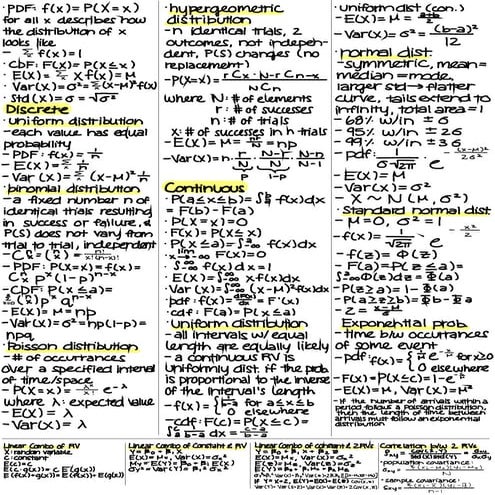 · PDF: f(x) = P(X = x)
for all x describes how
the distribution of x
looks like
- Σ f(x) = 1
· CDF: F(X) = P(X ≤ x)
· E(X) = Σ x f(x) = M
· Var(x) = σ² = Σ (x-M)² f(x)
· Std(x) = σ = √σ²
Discrete
· uniform distribution
- each value has equal
probability
- PDF: f(x) = 1/n
- E(X) = Σ x/n
- Var(x) = Σ (x-M)² 1/n
· binomial distribution
- a fixed number n of
identical trials resulting
in success or failure, &
P(S) does not vary from
trial to trial, independent
- PDF: P(X=x) = f(x) =
p^x (1-p)^n-x
- CDF: P(X ≤ a) =
- E(X) = M = np
- Var(x) = σ² = np(1-p) =
npq
· Poisson distribution
- # of occurrances
over a specified interval
of time/space
where λ: expected value
- E(X) = λ
- Var(X) = λ
· hypergeometric
distribution
- n identical trials, 2
outcomes, not indepen-
dent, P(S) changes (no
replacement)
- P(X=x) = rCx · N-rCn-x / NCn
where N: # of elements
r: # of successes
n: # of trials
x: # of successes in n trials
- E(X) = M = n r/N = np
- Var(x) = n · r/N · N-r/N · N-n/N-1
p 1-p
Continuous
· P(a ≤ x ≤ b) = ∫ f(x)dx
= F(b) - F(a)
· P(X = x) = 0
· F(x) = P(X ≤ x)
· P(X ≤ a) = ∫ f(x)dx
· lim F(x) = 0
· ∫ f(x)dx = 1
· E(X) = ∫ x f(x)dx
· Var(X) = ∫ (x-M)² f(x)dx
· pdf: f(x) = = F'(x)
· cdf: F(a) = P(X ≤ a)
· Uniform distribution
- all intervals w/ equal
length are equally likely
- a continuous RV is
uniformly dist. if the prob
is proportional to the inverse
of the interval's length
- f(x) = { 1/b-a for a ≤ x ≤ b
0 elsewhere
- cdf: F(c) = P(X ≤ c) =
· Uniform dist (con.)
- E(X) = M =
- Var(x) = σ² = (b-a)²/12
· normal dist.
- symmetric, mean=
median=mode,
larger std → flatter
curve, tails extend to
infinity, total area = 1
- 68% w/in ± σ
- 95% w/in ± 2σ
- 99% w/in ± 3σ
- pdf: 1/σ√2π e^-(x-M)²/2σ²
- E(X) = M
- Var(x) = σ²
- X ~ N(M, σ²)
· Standard normal dist
- M = 0, σ² = 1
- f(x) = 1/√2π e^-x²/2
- F(z) = Φ(z)
- F(a) = P(Z ≤ a) =
∫ Φ(z)dz = Φ(a)
- P(Z ≥ a) = 1 - Φ(a)
- Z = x-M/σ
· Exponential prob.
- time b/w occurances
of some event
0 elsewhere
- if the number of arrivals within a
period follows a Poisson distribution,
then the length of time between
arrivals must follow an exponential
distribution
Linear Combo of RV
X: random variable
C: constant
E(c) = c
Linear Combo of Constant & RV
Linear Combo of Constant & 2 RVs
Correlation b/w 2 RVs
· population covariance:
· sample covariance: